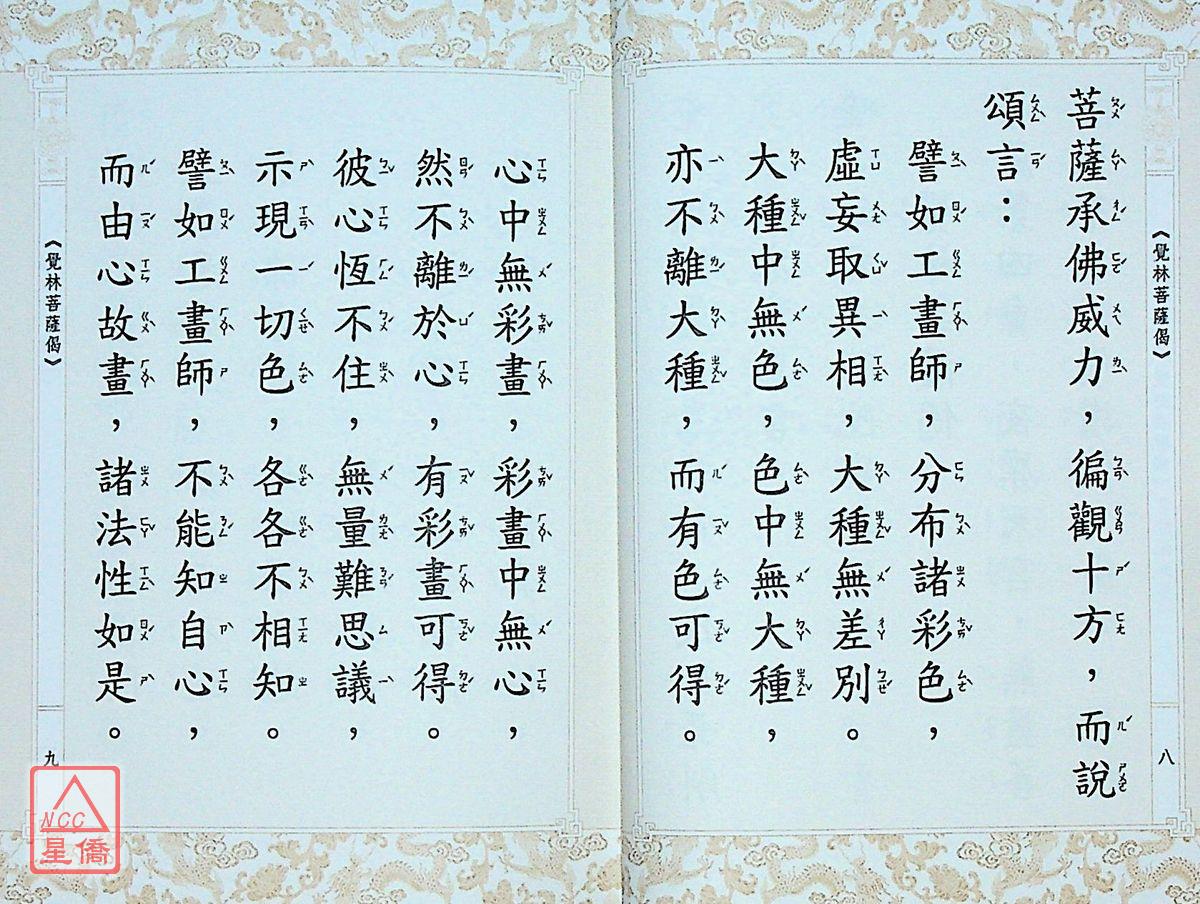 《覺林菩薩偈》
八
菩薩承佛威力，徧觀十方，而說
頌言：
譬如工畫師，分布諸彩色，
虛妄取異相，大種無差別。
大種中無色，色中無大種，
亦不離大種，而有色可得。
心中無彩畫，彩畫中無心，
然不離於心，有彩畫可得。
彼心恆不住，無量難思議，
示現一切色，各各不相知。
譬如工畫師，不能知自心，
而由心故畫，諸法性如是。
《覺林菩薩偈》
九
NCC
星僑